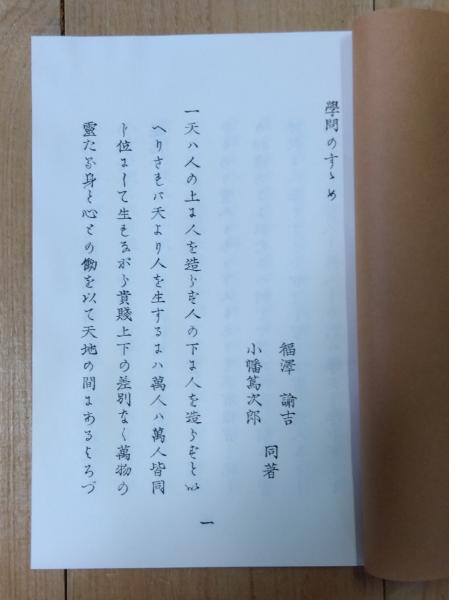 學問のすゝめ
福澤 諭吉
小幡篤次郎
同著
一天ハ人の上に人を造らず人の下に人を造らずと以
へりされバ天より人を生するにハ萬人ハ萬人皆同
ト位にして生れながら貴賤上下の差別なく萬物の
靈たる身と心との働を以て天地の間にあるよろづ
一